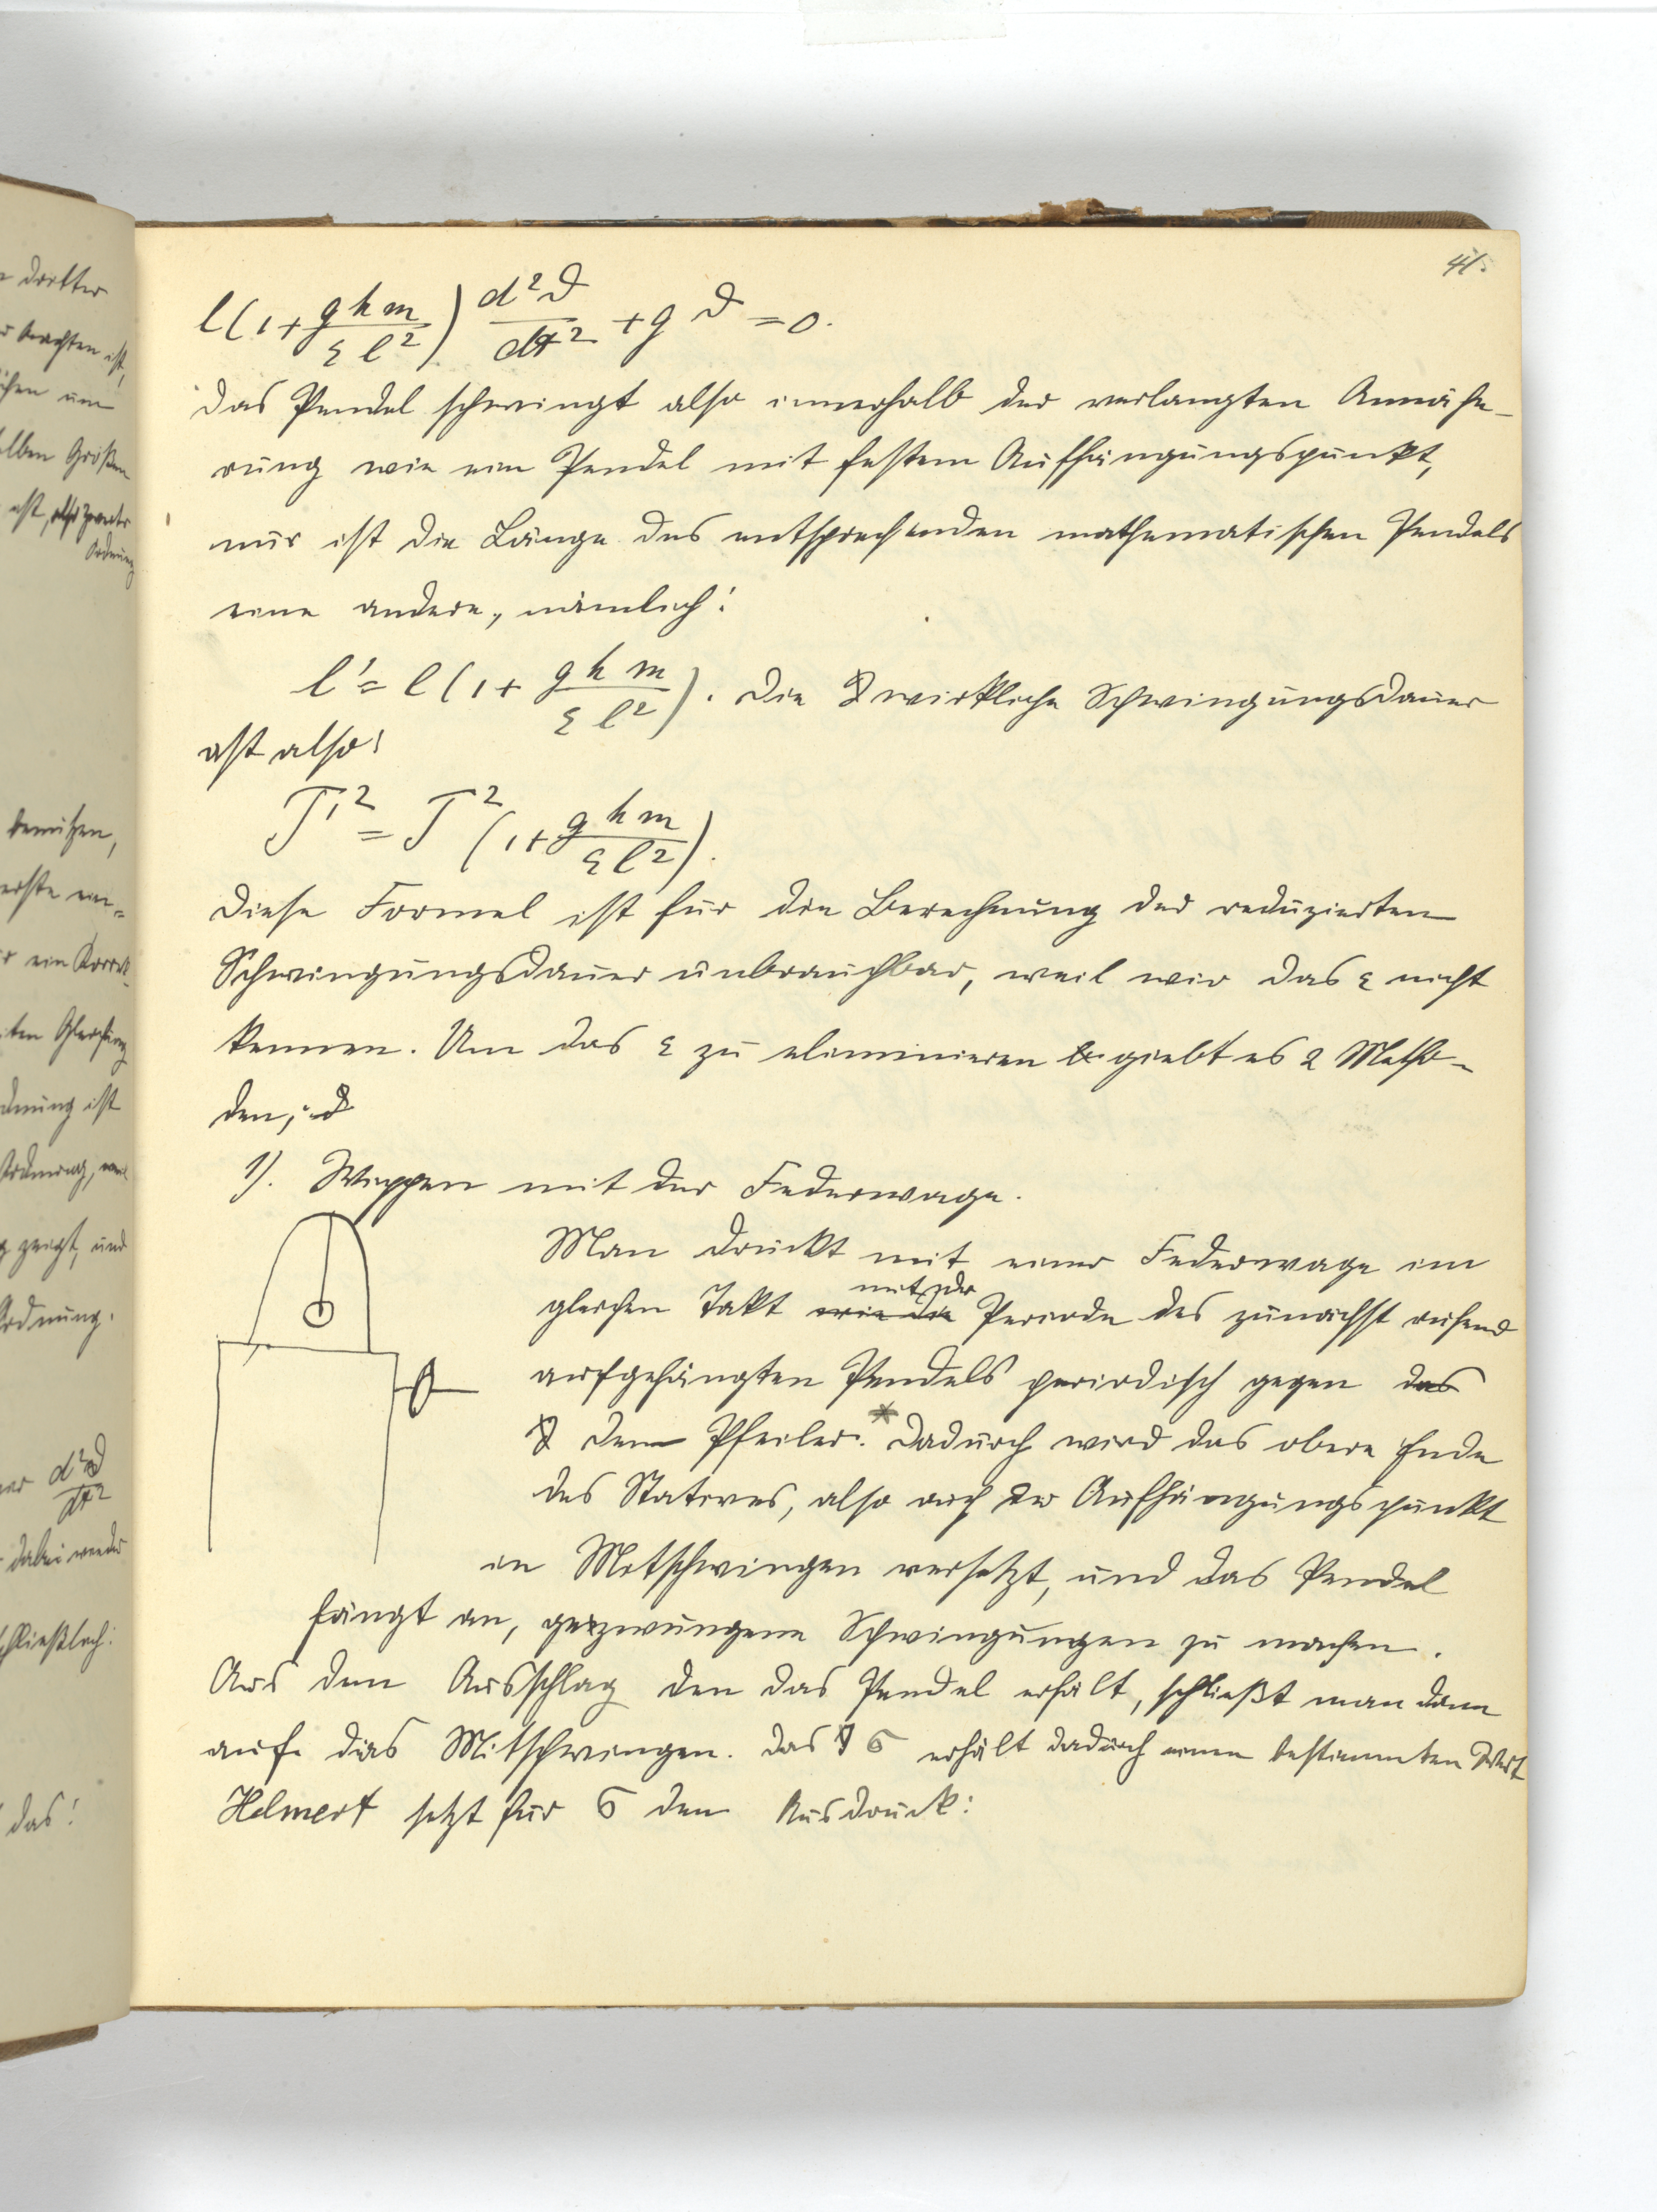 41.
l(1+ghm/εl²) d²ϑ/dt² + gϑ = 0.
Das Pendel schwingt also innerhalb der verlangten Annähe-
rung wie ein Pendel mit festem Aufhängungspunkt,
nur ist die Länge des entsprechenden mathematischen Pendels
eine andere, nämlich:
l' = l(1+ghm/εl²). Die wirkliche Schwingungsdauer
ist also:
T'² = T²(1+ghm/εl²).
Diese Formel ist für die Berechnung der reduzierten
Schwingungsdauer unbrauchbar, weil wir das ε nicht
kennen. Um das ε zu eliminieren giebt es 2 Metho-
den;
1). Wippen mit der Federwage.
Man drückt mit einer Federwage im
mit der
gleichen Takt wie die Periode des zunächst ruhend
aufgehängten Pendels periodisch gegen das
den Pfeiler.* Dadurch wird das obere Ende
des Statives, also auch der Aufhängungspunkt
in Mitschwingen versetzt, und das Pendel
fängt an, gezwungene Schwingungen zu machen.
Aus dem Ausschlag den das Pendel erhält, schließt man dann
auf das Mitschwingen. Das σ erhält dadurch einen bestimmten Wert
Helmert setzt für σ den Ausdruck:
dritter
ist,
um
selben Größen
ist, also zweiter
Ordnung
benützen,
erste
ein
ten Gleichung
dnung ist
zeigt, und
Ordnung.
d²ϑ/dt²
dabei weder
schließlich:
das: